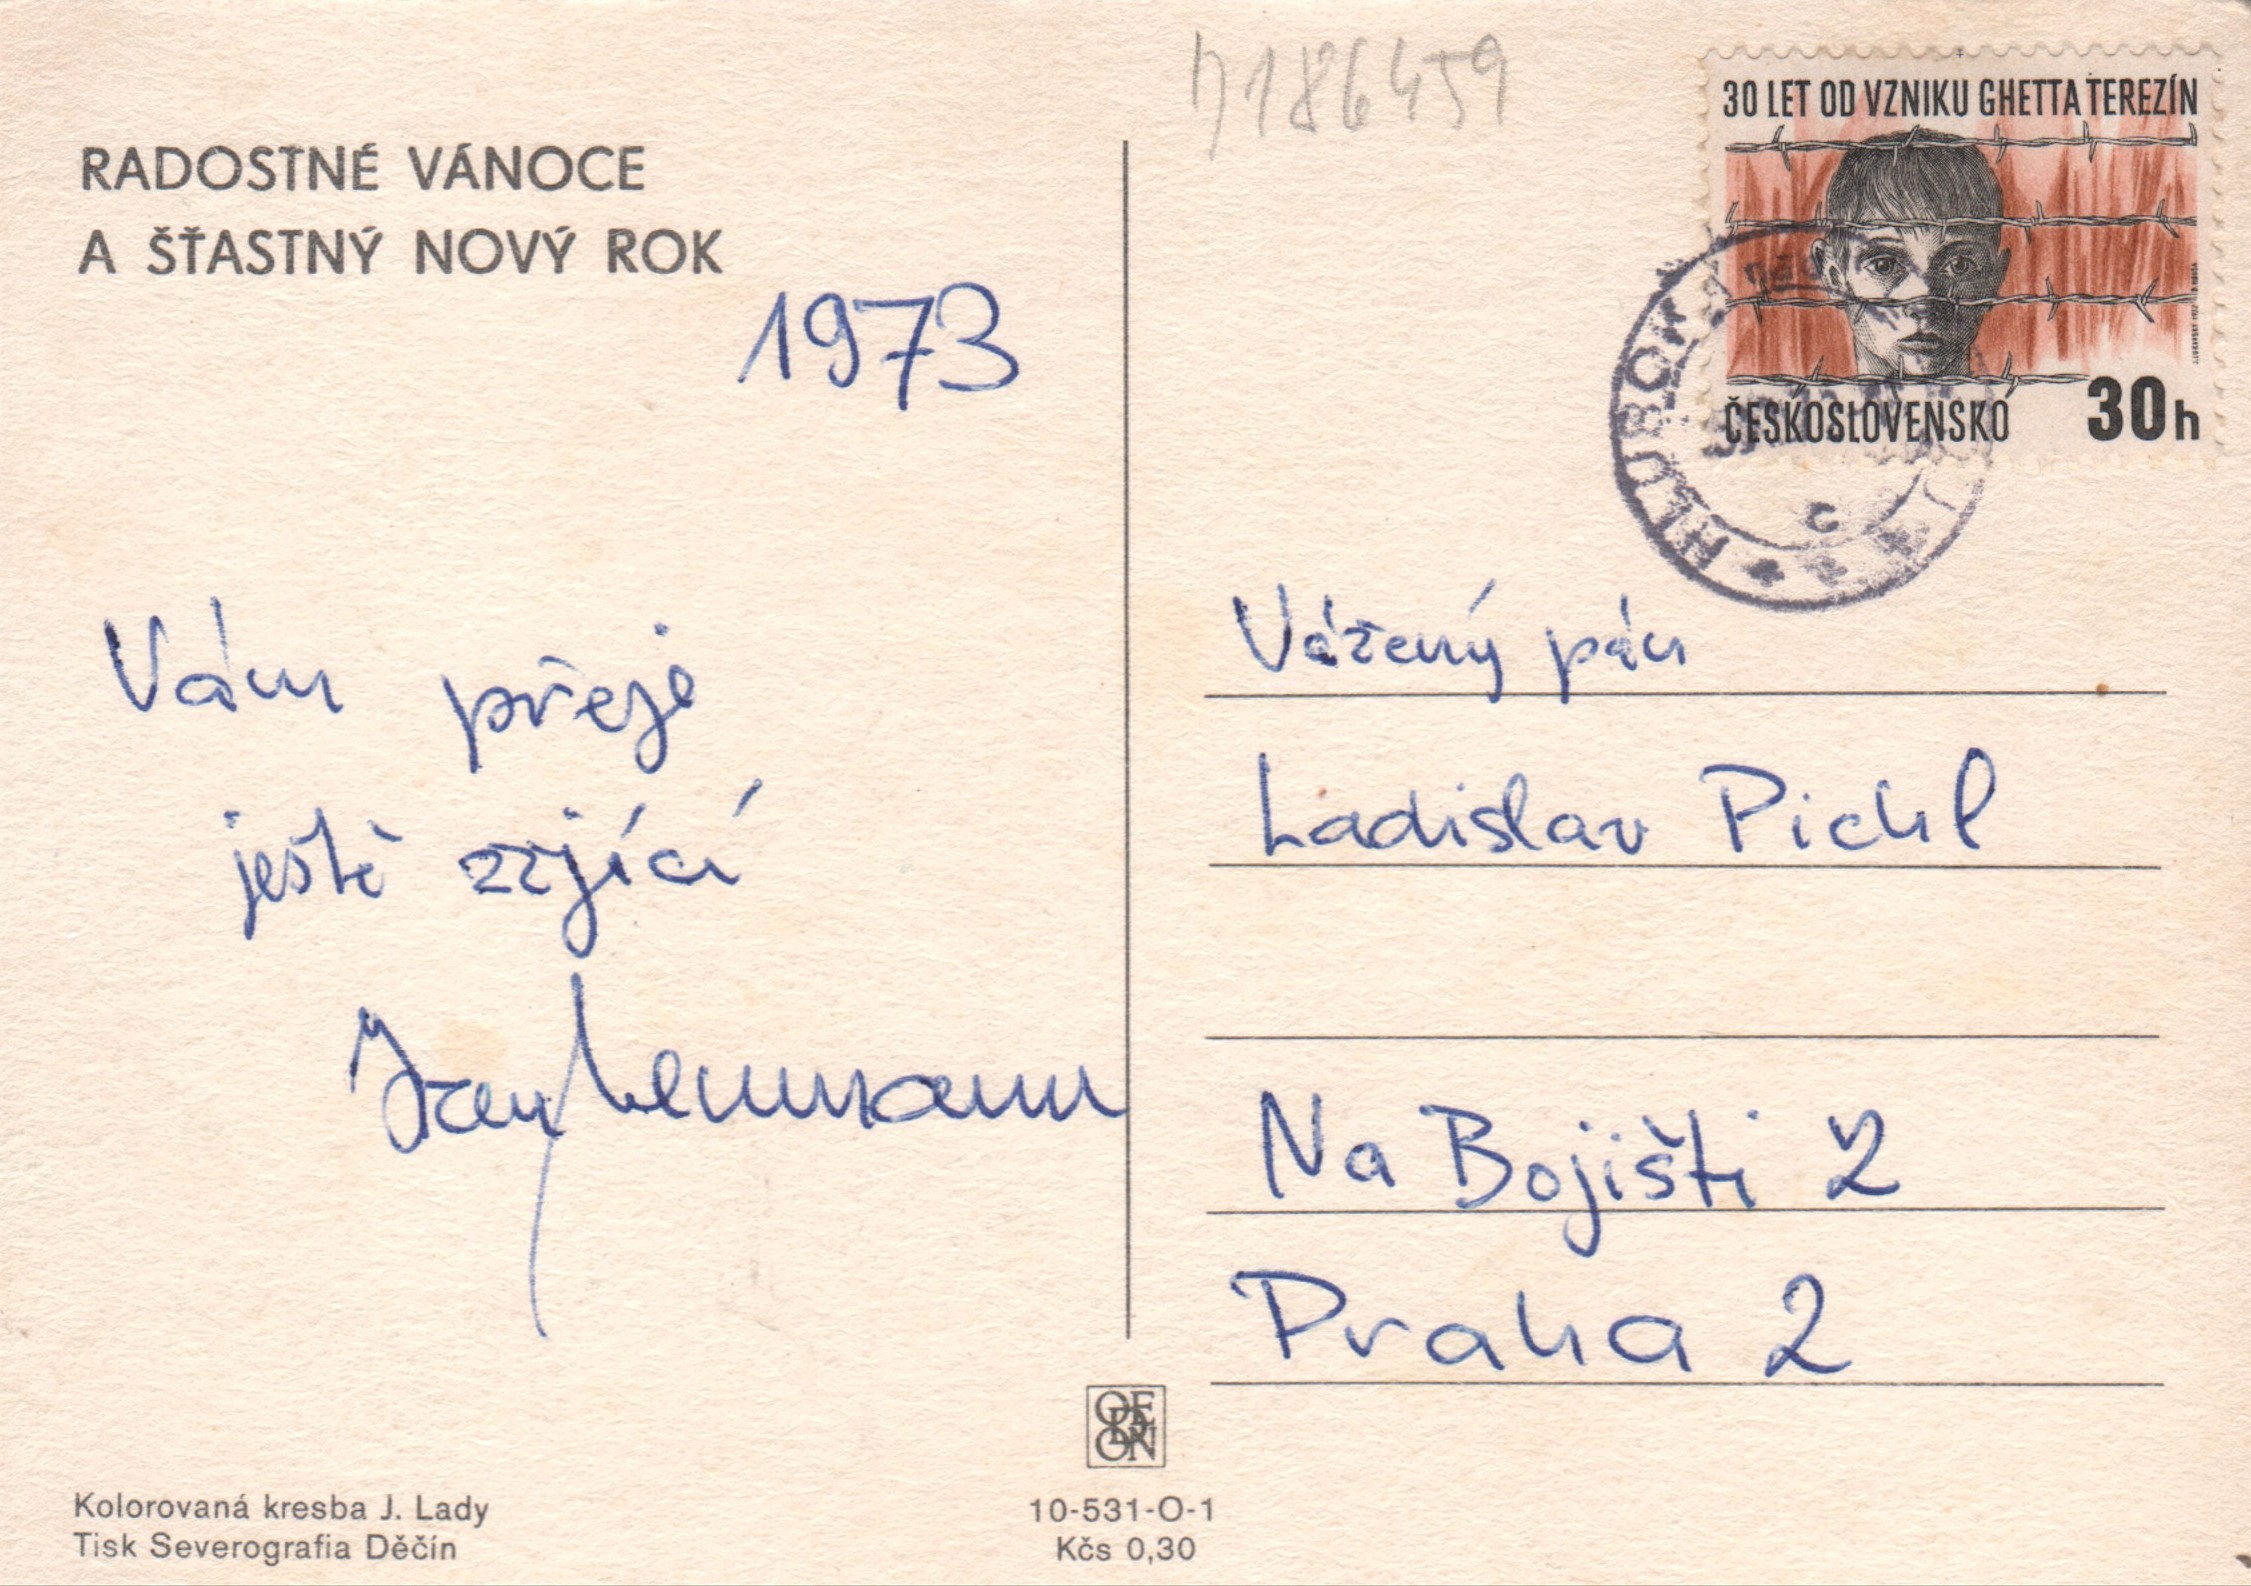 D186459
30 LET OD VZNIKU GHETTA TEREZÍN
ČESKOSLOVENSKO 30h
HLUBOKÁ nad
c
RADOSTNÉ VÁNOCE
A ŠŤASTNÝ NOVÝ ROK
1973
Vám přeje
ještě zrjící
Vážený pán
Ladislav Pichl
Na Bojišti 2
Praha 2
ODEON
Kolorovaná kresba J. Lady
Tisk Severografia Děčín
10-531-O-1
Kčs 0,30